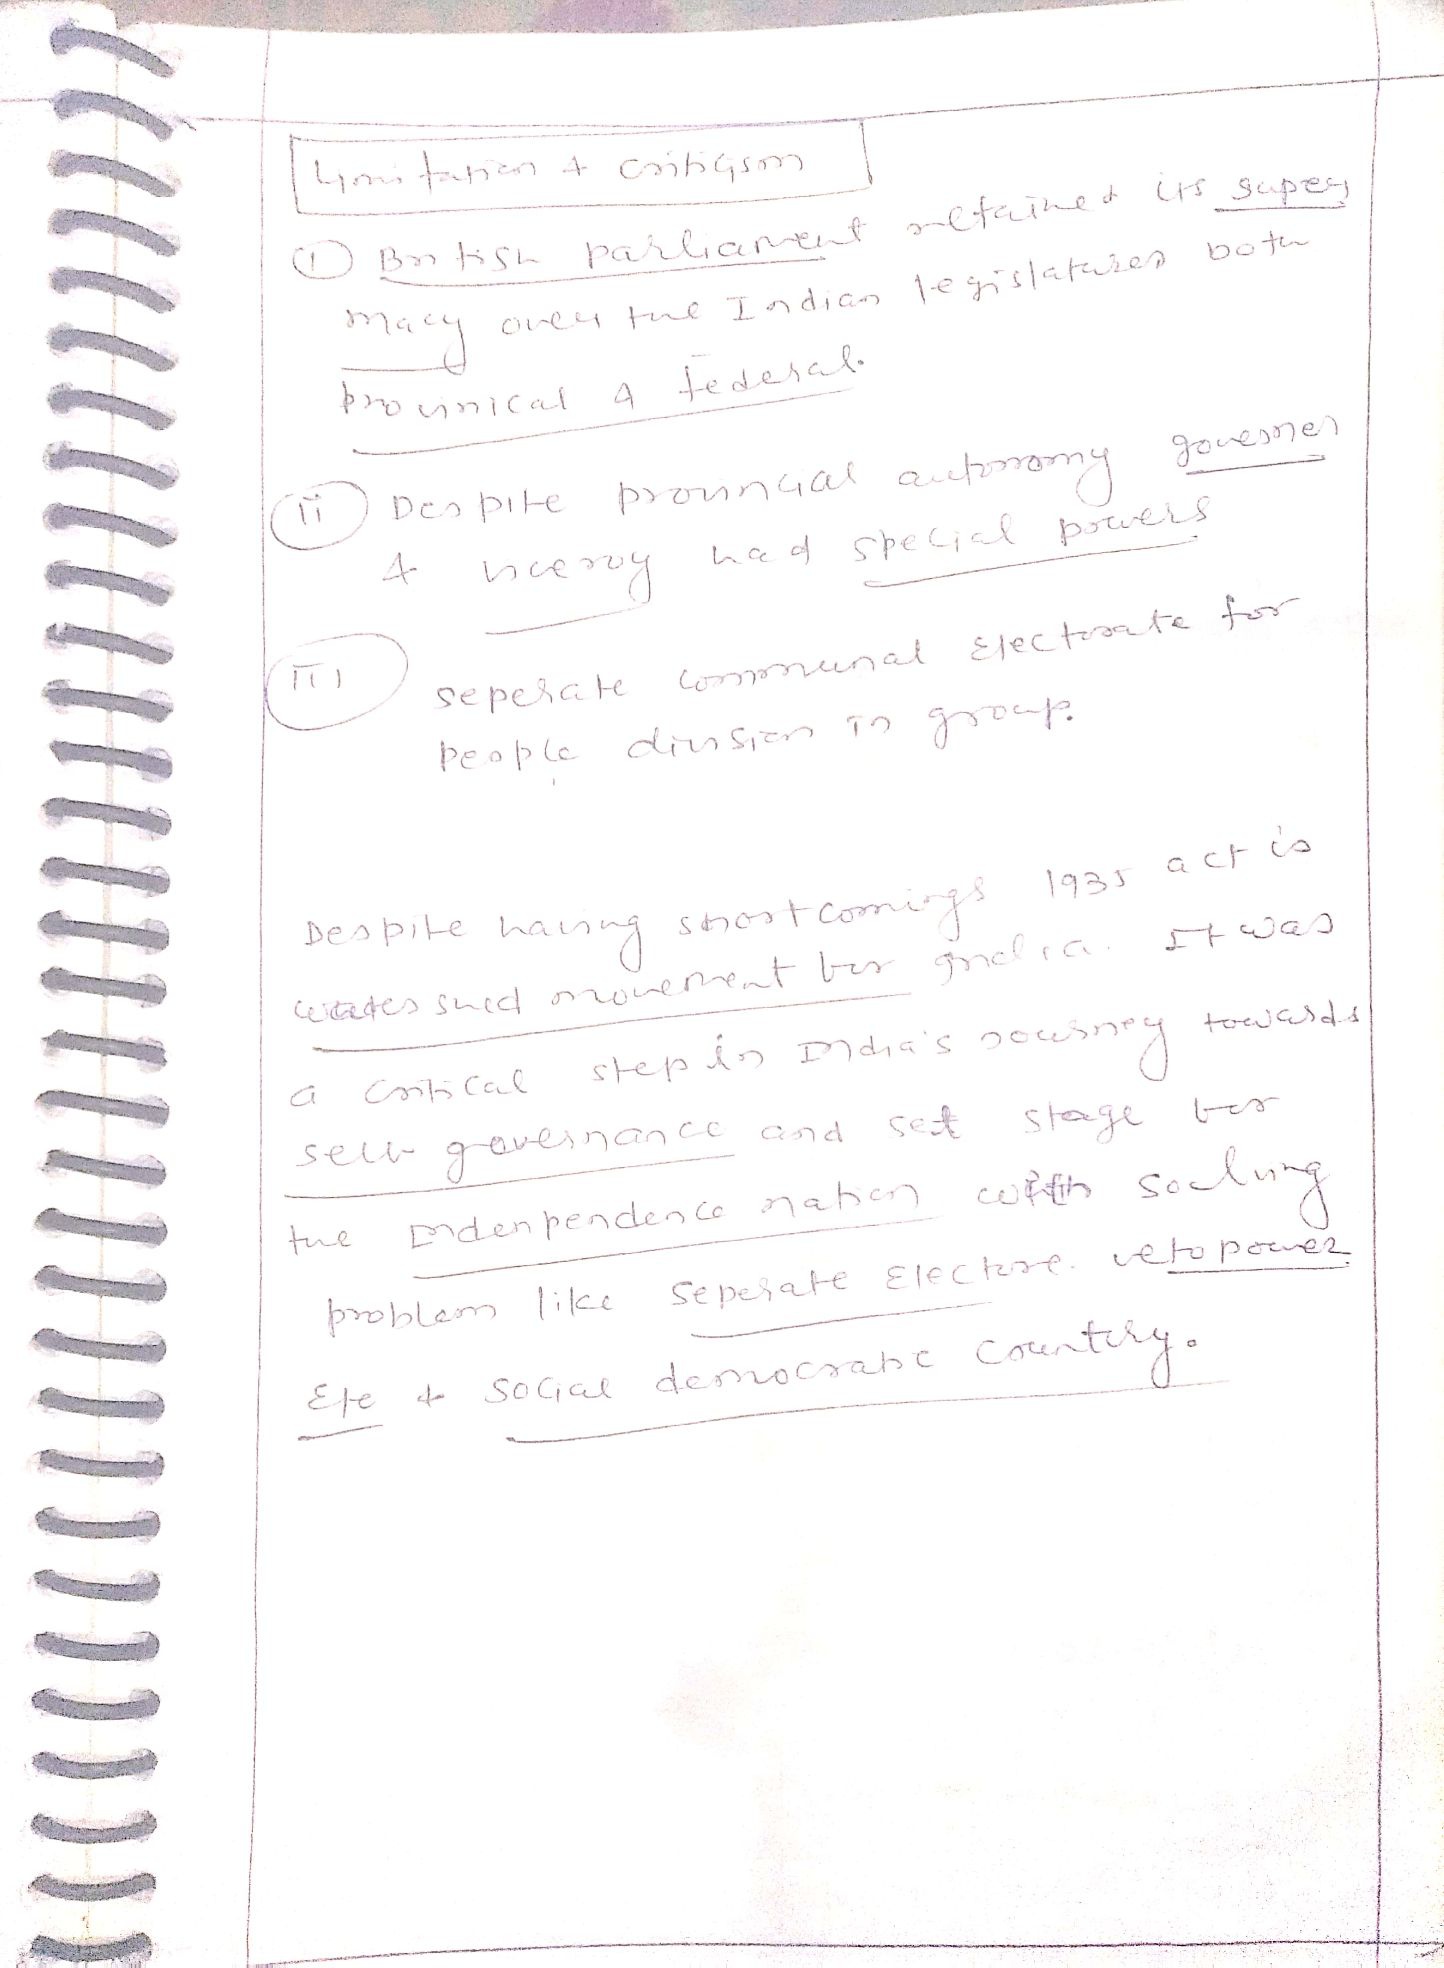 Limitation & Critisism
① British parliament retained its supery
macy over the Indian legislatures both
provinical & federal.
ii Despite provincial autonomy governer
& viceroy had special powers
iii seperate communal Electorate for
people division in group.
Despite having shortcomings 1935 act is
watershed movement for India. It was
a critical step in India's journey towards
self governance and set stage for
the Indenpendence nation with soclving
problem like seperate Electore. veto power
Ete & social democratic country.